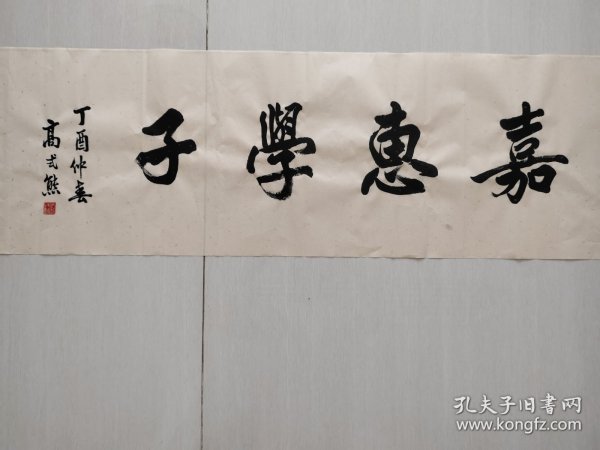 嘉惠學子
丁酉仲春
高式熊
孔夫子旧书网
www.kongfz.com